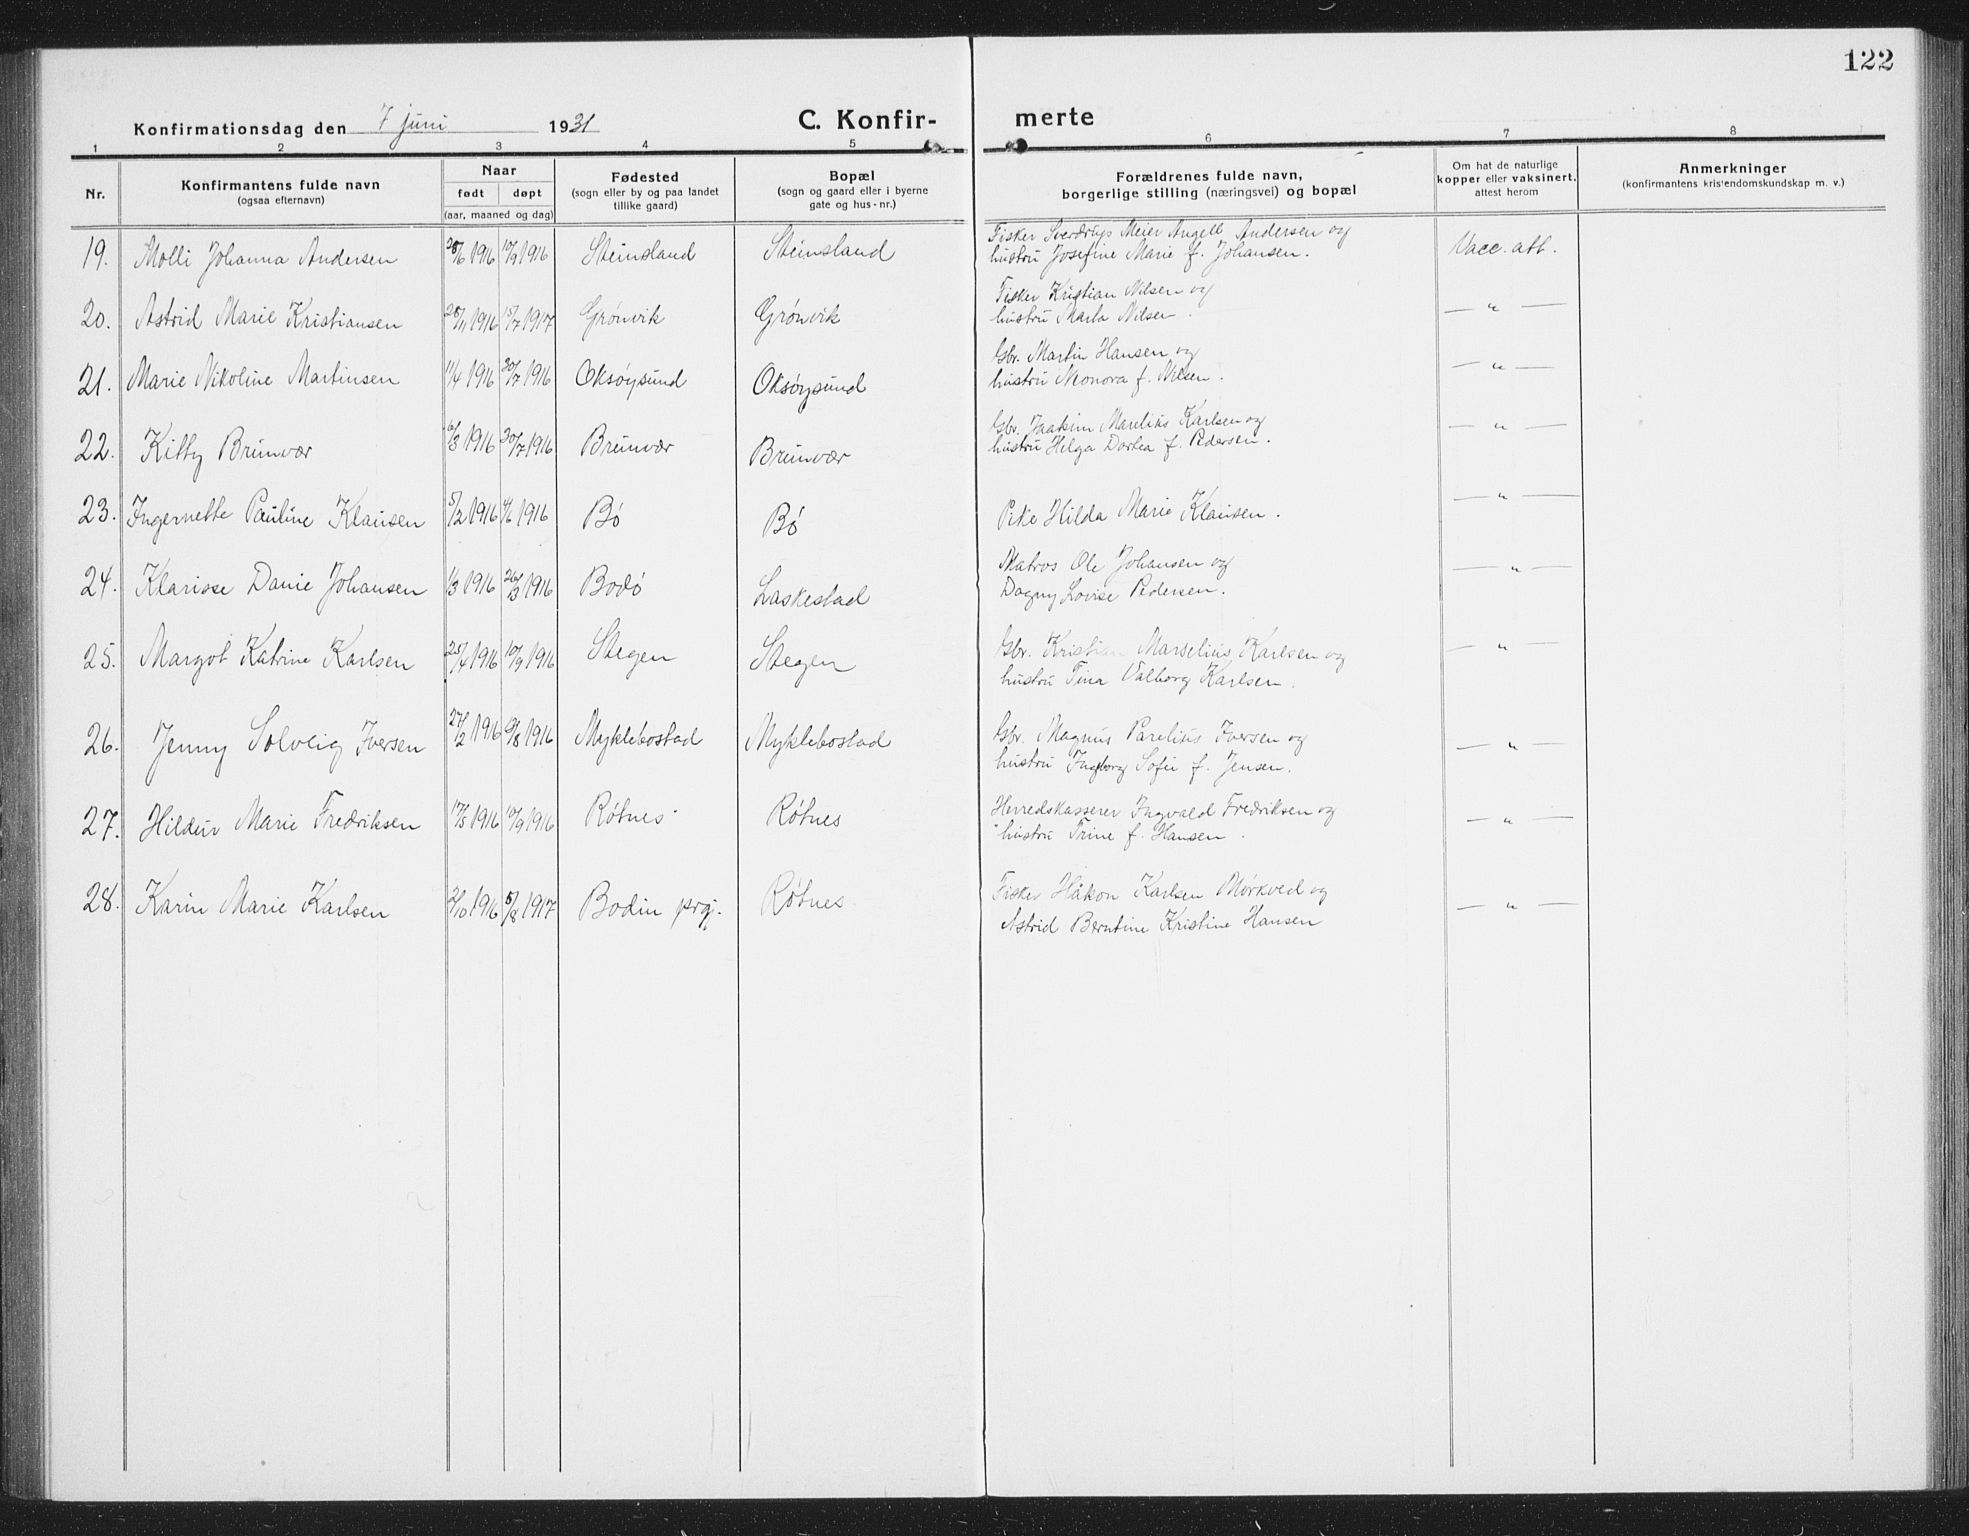 122
Konfirmationsdag den 7 juni 1931 C. Konfir- merte
1 2 3 4 5 6 7 8
Nr.
Konfirmantens fulde navn
(ogsaa efternavn)
Naar
født døpt
(aar, maaned og dag)
Fødested
(sogn eller by og paa landet
tillike gaard)
Bopæl
(sogn og gaard eller i byerne
gate og hus-nr.)
Forældrenes fulde navn,
borgerlige stilling (næringsvei) og bopæl
Om hat de naturlige
kopper eller vaksinert,
attest herom
Anmerkninger
(konfirmantens kristendomskundskap m. v.)
19. Molli Johanna Andersen 28/6 1916 10/9 1916 Steinsland Steinsland Fisker Sverdrup Meier Angell Andersen og
hustru Josefine Marie f. Johansen. Vacc. att.
20. Astrid Marie Kristiansen 28/11 1916 15/7 1917 Grønvik Grønvik Fisker Kristian Nilsen og
hustru Marta Nilsen. — " —
21. Marie Nikoline Martinsen 11/4 1916 30/7 1916 Oksøysund Oksøysund Gbr. Martin Hansen og
hustru f. Nilsen. — " —
22. Kitty Brunvær 6/3 1916 30/7 1916 Brunvær Brunvær Gbr. Joakim Marelius Karlsen og
hustru Helga Dortea f. Pedersen. — " —
23. Ingernette Pauline Klausen 5/2 1916 4/6 1916 Bø Bø Pike Hilda Marie Klausen. — " —
24. Klarisse Danie Johansen 1/3 1916 26/3 1916 Bodø Laskestad Matros Ole Johansen og
Dagny Lovise Pedersen. — " —
25. Margot Katrine Karlsen 25/4 1916 10/9 1916 Stegen Stegen Gbr. Kristian Marselius Karlsen og
hustru Tina Valborg Karlsen. — " —
26. Jenny Solveig Iversen 27/2 1916 /8 1916 Myklebostad Myklebostad Gbr. Magnus Parelius Iversen og
hustru Ingeborg Sofie f. Jensen. — " —
27. Hildur Marie Fredriksen 17/5 1916 10/9 1916 Røtnes Røtnes Herredskasserer Ingvald Fredriksen og
hustru Trine f. Hansen. — " —
28. Karin Marie Karlsen /10 1916 5/8 1917 Bodin prgj. Røtnes Fisker Håkon Karlsen Mørkved og
Astrid Berntine Kristine Hansen — " —